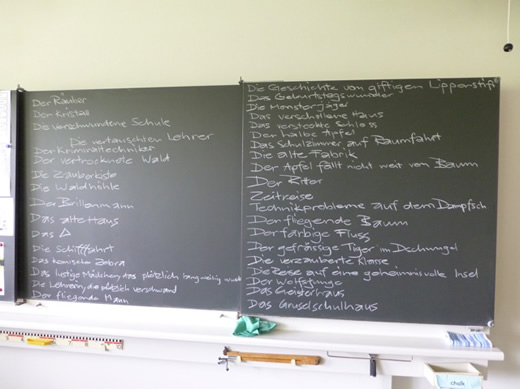 Der Räuber
Der Kristall
Die verschwundene Schule
Die vertauschten Lehrer
Der Kriminaltechniker
Der vertrocknete Wald
Die Zauberkiste
Die Waldhöhle
Der Brillenmann
Das alte Haus
Das △
Die Schifffahrt
Das komische Zebra
Das lustige Mädchen, das plötzlich
Die Lehrerin, die plötzlich verschwand
Der fliegende Mann
Die Geschichte von giftigen Lippenstift
Das Geburtstagswunder
Die Monsterjäger
Das verschollene Haus
Das versteckte Schloss
Der halbe Apfel
Das Schulzimmer auf Raumfahrt
Die alte Fabrik
Der Apfel fällt nicht weit vom Baum
Der Ritter
Zeitreise
Technikprobleme auf dem Dampfsch
Der fliegende Baum
Der farbige Fluss
Der gefrässige Tiger im Dschungel
Die verzauberte Klasse
Die Reise auf eine geheimnisvolle Insel
Der Wolfsjunge
Das Geisterhaus
Das Gruselschulhaus
chalk